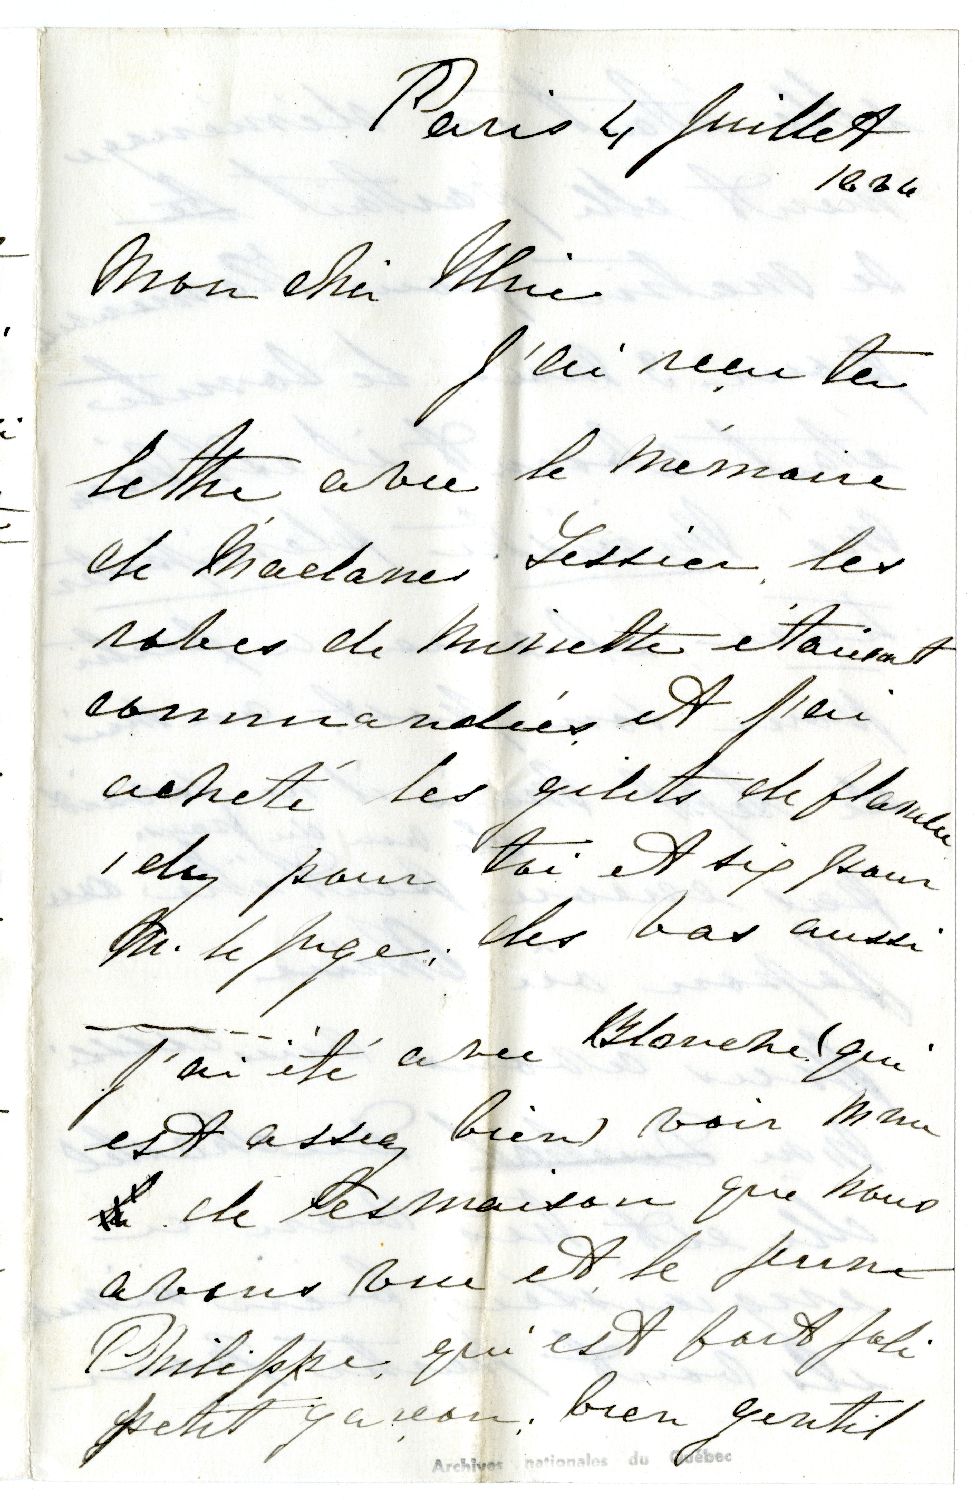 Paris 4 Juillet
Mon cher
J'ai reçu ta
lettre avec le mémoire
de Madame Tessier, les
robes de Minette étaient
commandées, et j'ai
acheté les gilets de flanelle
pour toi et six pour
M. le Juge; des bas aussi
J'ai été avec Blanche (qui
est assez bien) voir Mme
de Lesmaison que nous
avons vue et le jeune
Philippe, qui est fort joli
petit garçon; bien gentil
Archives nationales du Québec